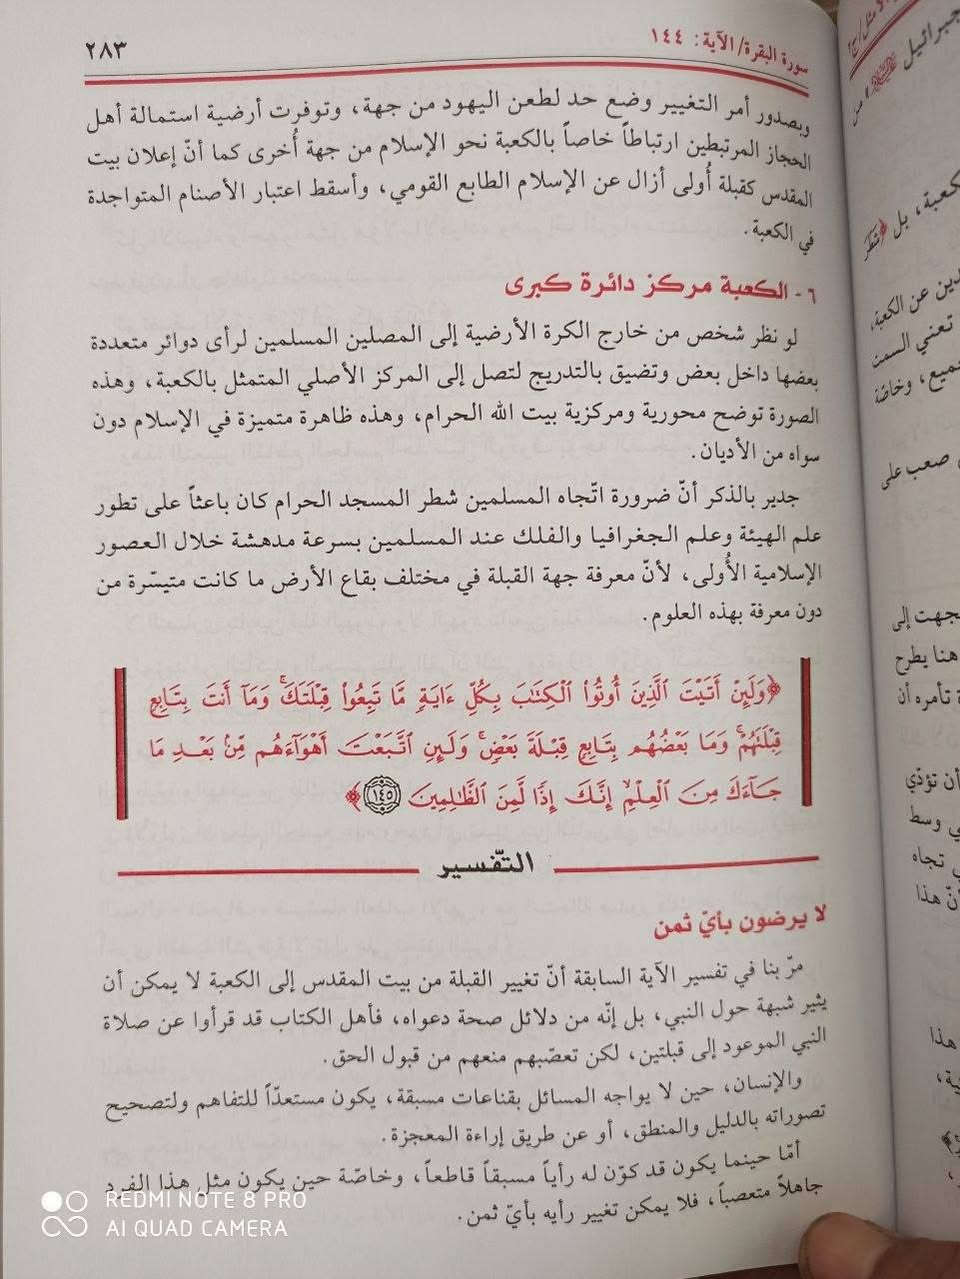 سورة البقرة/الآية: ١٤٤
٢٨٣
وبصدور أمر التغيير وضع حد لطعن اليهود من جهة، وتوفرت أرضية استمالة أهل
الحجاز المرتبطين ارتباطاً خاصاً بالكعبة نحو الإسلام من جهة أُخرى كما أنّ إعلان بيت
المقدس كقبلة أُولى أزال عن الإسلام الطابع القومي، وأسقط اعتبار الأصنام المتواجدة
في الكعبة.
٦ - الكعبة مركز دائرة كبرى
لو نظر شخص من خارج الكرة الأرضية إلى المصلين المسلمين لرأى دوائر متعددة
بعضها داخل بعض وتضيق بالتدريج لتصل إلى المركز الأصلي المتمثل بالكعبة، وهذه
الصورة توضح محورية ومركزية بيت الله الحرام، وهذه ظاهرة متميزة في الإسلام دون
سواه من الأديان.
جدير بالذكر أنّ ضرورة اتّجاه المسلمين شطر المسجد الحرام كان باعثاً على تطور
علم الهيئة وعلم الجغرافيا والفلك عند المسلمين بسرعة مدهشة خلال العصور
الإسلامية الأُولى، لأنّ معرفة جهة القبلة في مختلف بقاع الأرض ما كانت متيسّرة من
دون معرفة بهذه العلوم.
﴿وَلَئِنْ أَتَيْتَ الَّذِينَ أُوتُوا۟ الْكِتَٰبَ بِكُلِّ ءَايَةٍ مَّا تَبِعُوا۟ قِبْلَتَكَ ۚ وَمَآ أَنتَ بِتَابِعٍ
قِبْلَتَهُمْ ۚ وَمَا بَعْضُهُم بِتَابِعٍ قِبْلَةَ بَعْضٍ ۚ وَلَئِنِ اتَّبَعْتَ أَهْوَآءَهُم مِّنۢ بَعْدِ مَا
جَآءَكَ مِنَ الْعِلْمِ ۙ إِنَّكَ إِذًا لَّمِنَ الظَّٰلِمِينَ ١٤٥﴾
التّفسير
لا يرضون بأيّ ثمن
مرّ بنا في تفسير الآية السابقة أنّ تغيير القبلة من بيت المقدس إلى الكعبة لا يمكن أن
يثير شبهة حول النبي، بل إنّه من دلائل صحة دعواه، فأهل الكتاب قد قرأوا عن صلاة
النبي الموعود إلى قبلتين، لكن تعصّبهم منعهم من قبول الحق.
والإنسان، حين لا يواجه المسائل بقناعات مسبقة، يكون مستعدّاً للتفاهم ولتصحيح
تصوراته بالدليل والمنطق، أو عن طريق إراءة المعجزة.
أمّا حينما يكون قد كوّن له رأياً مسبقاً قاطعاً، وخاصّة حين يكون مثل هذا الفرد
جاهلاً متعصباً، فلا يمكن تغيير رأيه بأيّ ثمن.
جبرائيل
كعبة، بل ﴿شَطْرَ
دين عن الكعبة،
تعني السمت
جميع، وخاصّة
صعب على
جهت إلى
هنا يطرح
ة تأمره أن
أن تؤدّي
ي وسط
ي تجاه
نّ هذا
هذا
REDMI NOTE 8 PRO
AI QUAD CAMERA